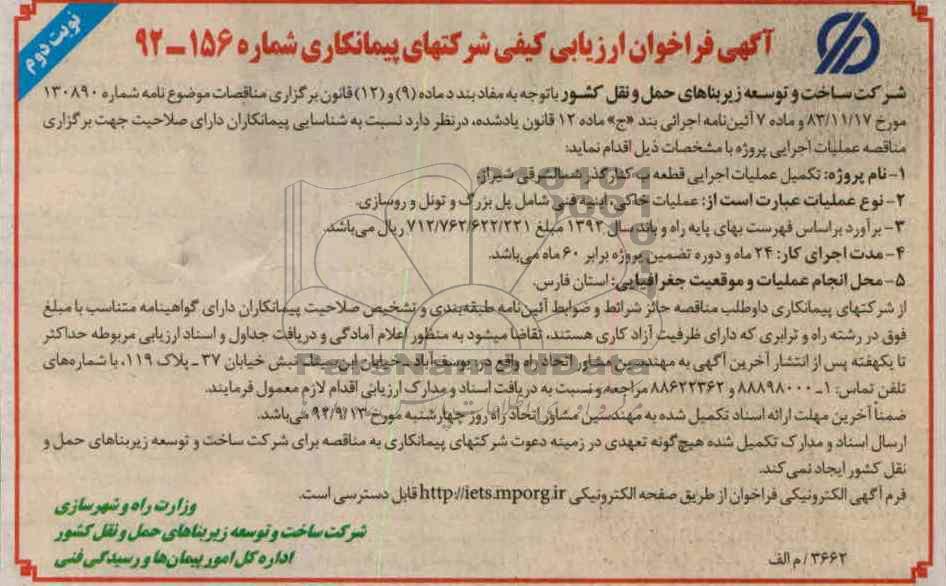 نوبت دوم
آگهی فراخوان ارزیابی کیفی شرکتهای پیمانکاری شماره ۱۵۶–۹۲
شرکت ساخت و توسعه زیربناهای حمل و نقل کشور باتوجه به مفاد بند د ماده (۹) و (۱۲) قانون برگزاری مناقصات موضوع نامه شماره ۱۳۰۸۹۰
مورخ ۸۳/۱۱/۱۷ و ماده ۷ آئین‌نامه اجرائی بند «ج» ماده ۱۲ قانون یادشده، درنظر دارد نسبت به شناسایی پیمانکاران دارای صلاحیت جهت برگزاری
مناقصه عملیات اجرایی پروژه با مشخصات ذیل اقدام نماید:
۱- نام پروژه: تکمیل عملیات اجرایی قطعه کنارگذر شمالشرقی شیراز.
۲- نوع عملیات عبارت است از: عملیات خاکی، ابنیه فنی شامل پل بزرگ و تونل و روسازی.
۳- برآورد براساس فهرست بهای پایه راه و باند سال ۱۳۹۲ مبلغ ۷۱۲/۷۶۲/۶۲۲/۲۲۱ ریال می‌باشد.
۴- مدت اجرای کار: ۲۴ ماه و دوره تضمین پروژه برابر ۶۰ ماه می‌باشد.
۵- محل انجام عملیات و موقعیت جغرافیایی: استان فارس.
از شرکتهای پیمانکاری داوطلب مناقصه حائز شرائط و ضوابط آئین‌نامه طبقه‌بندی و تشخیص صلاحیت پیمانکاران دارای گواهینامه متناسب با مبلغ
فوق در رشته راه و ترابری که دارای ظرفیت آزاد کاری هستند، تقاضا میشود به منظور اعلام آمادگی و دریافت جداول و اسناد ارزیابی مربوطه حداکثر
تا یکهفته پس از انتشار آخرین آگهی به مهندسین مشاور اتحاد راه واقع در یوسف‌آباد - خیابان ابن سینا - نبش خیابان ۳۷ - پلاک ۱۱۹، با شماره‌های
تلفن تماس: ۱- ۸۸۸۹۸۰۰۰ و ۸۸۶۲۲۳۶۲ مراجعه و نسبت به دریافت اسناد و مدارک ارزیابی اقدام لازم معمول فرمایند.
ضمناً آخرین مهلت ارائه اسناد تکمیل شده به مهندسین مشاور اتحاد راه روز چهارشنبه مورخ ۹۲/۹/۱۳ می‌باشد.
ارسال اسناد و مدارک تکمیل شده هیچ‌گونه تعهدی در زمینه دعوت شرکتهای پیمانکاری به مناقصه برای شرکت ساخت و توسعه زیربناهای حمل و
نقل کشور ایجاد نمی‌کند.
فرم آگهی الکترونیکی فراخوان از طریق صفحه الکترونیکی http://iets.mporg.ir قابل دسترسی است.
وزارت راه و شهرسازی
شرکت ساخت و توسعه زیربناهای حمل و نقل کشور
اداره کل امور پیمان‌ها و رسیدگی فنی
۳۶۶۲ / م الف
ParsNamadData